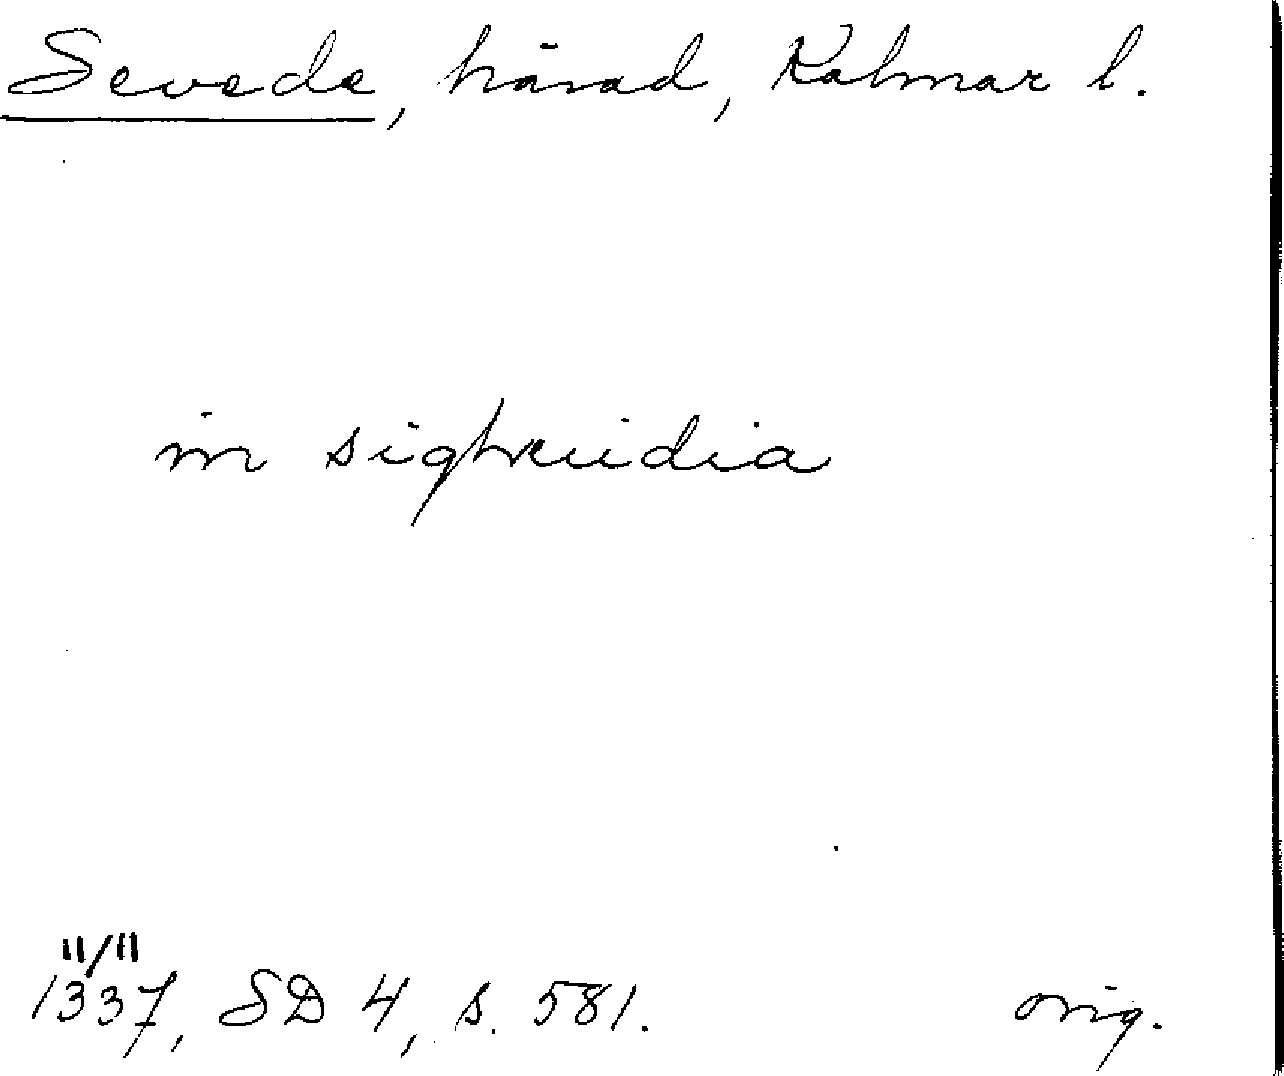 Sevede, härad, Kalmar l.
in sighuidia
11/11
1337, SD 4, s. 581. orig.